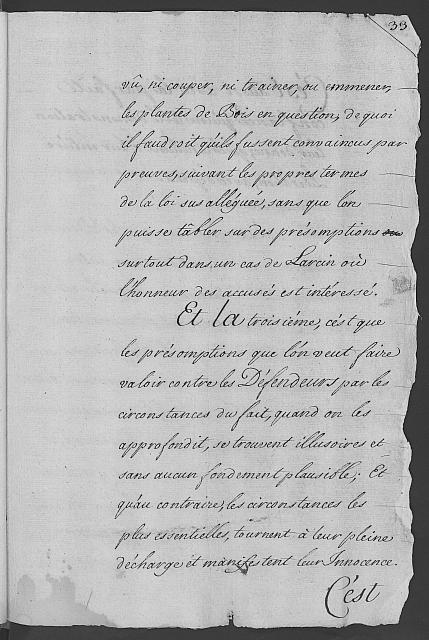 39
vû, ni couper, ni trainer, ou emmener,
les plantes de Bois en question, de quoi
il faudroit qu'ils fussent convaincus par
preuves, suivant les propres termes
de la loi sus alléguée, sans que l'on
puisse tâbler sur des présomptions
surtout dans un cas de Larcin où
l'honneur des accusés est intéressé.
Et la troisiéme, c'ést que
les présomptions que l'on veut faire
valoir contre les Défendeurs par les
circonstances du fait, quand on les
approfondit, se trouvent illusoires et
sans aucun fondement plausible; Et
qu'au contraire, les circonstances les
plus essentielles, tournent à leur pleine
décharge et manifestent leur Innocence.
C'ést